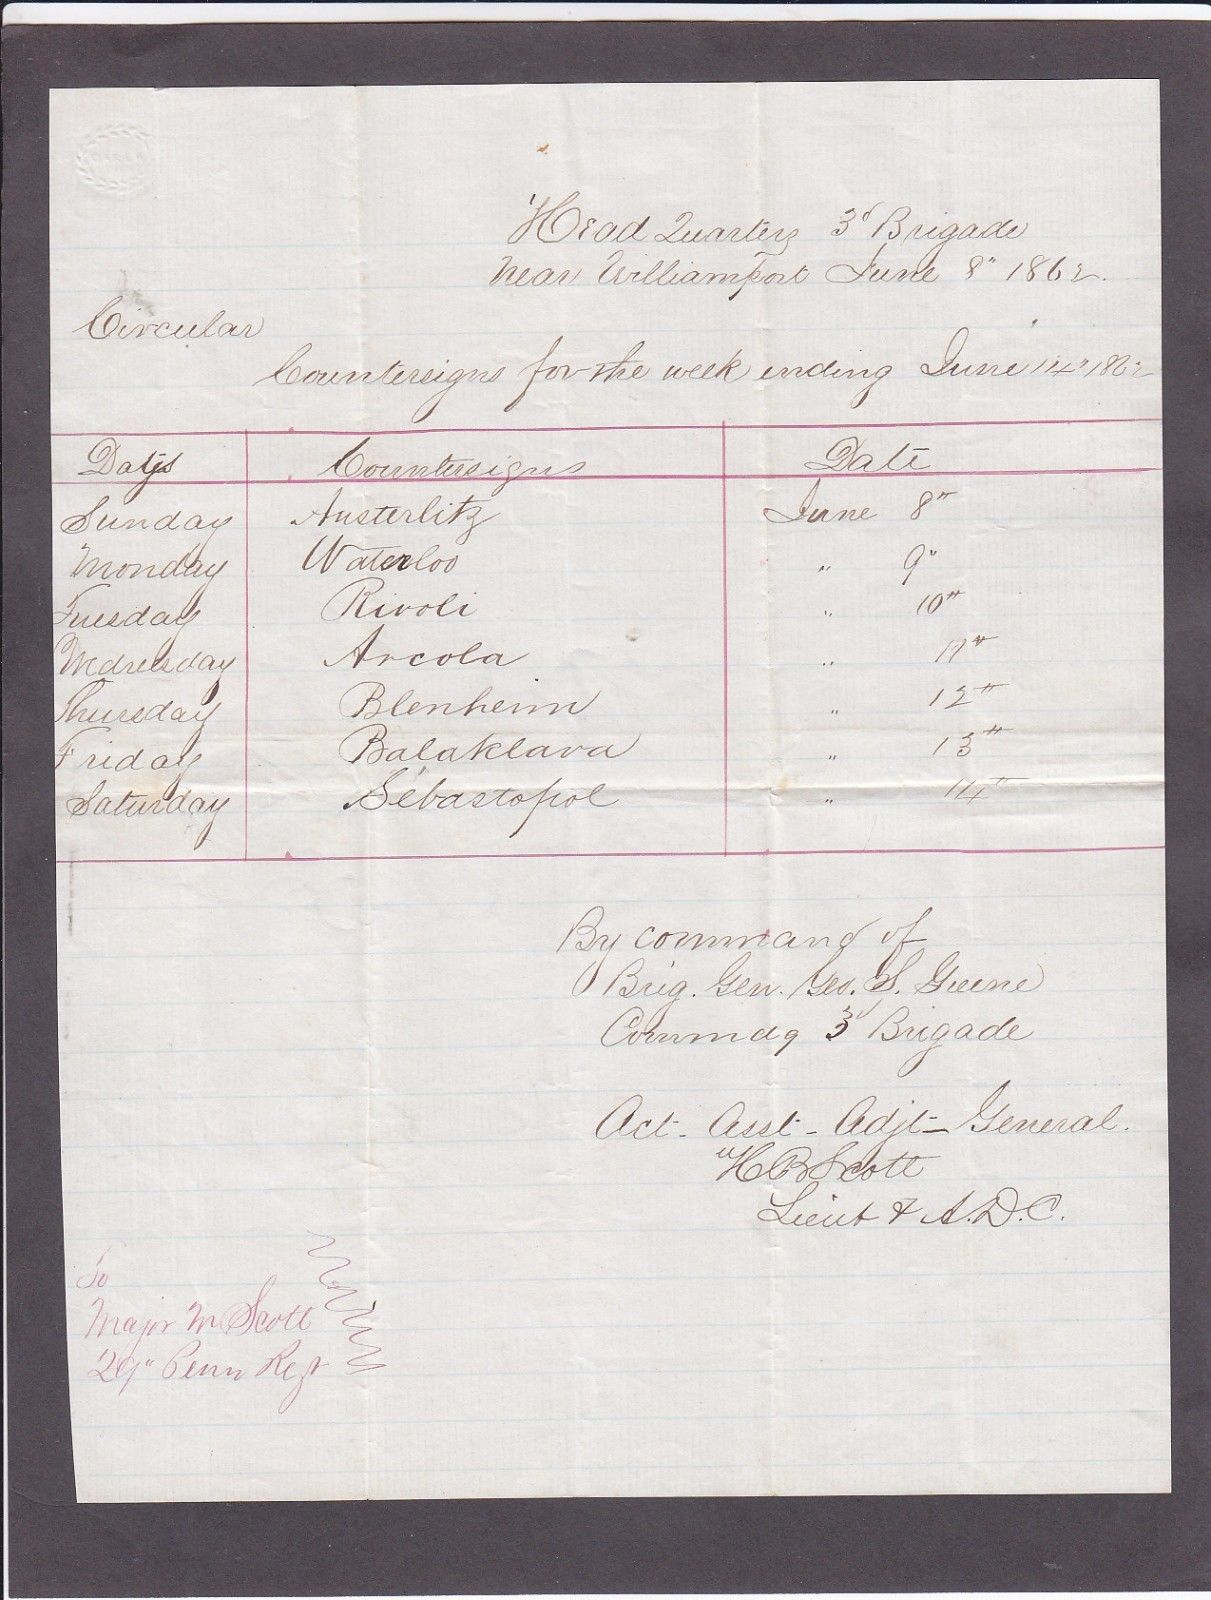 Head Quarters 3d Brigade
Near Williamsport June 8" 1862.
Circular
Countersigns for the week ending June 14" 1862
Days Countersigns Date
Sunday Austerlitz June 8"
Monday Waterloo " 9"
Tuesday Rivoli " 10"
Wednesday Arcola " 11"
Thursday Blenheim " 12"
Friday Balaklava " 13"
Saturday Sebastopol " 14"
By command of
Brig. Gen. Geo. S. Greene
Commdg 3d Brigade
Act. Asst. Adjt. General.
H B Scott
Lieut & A.D.C.
To
Major M Scott
29" Penn Regt